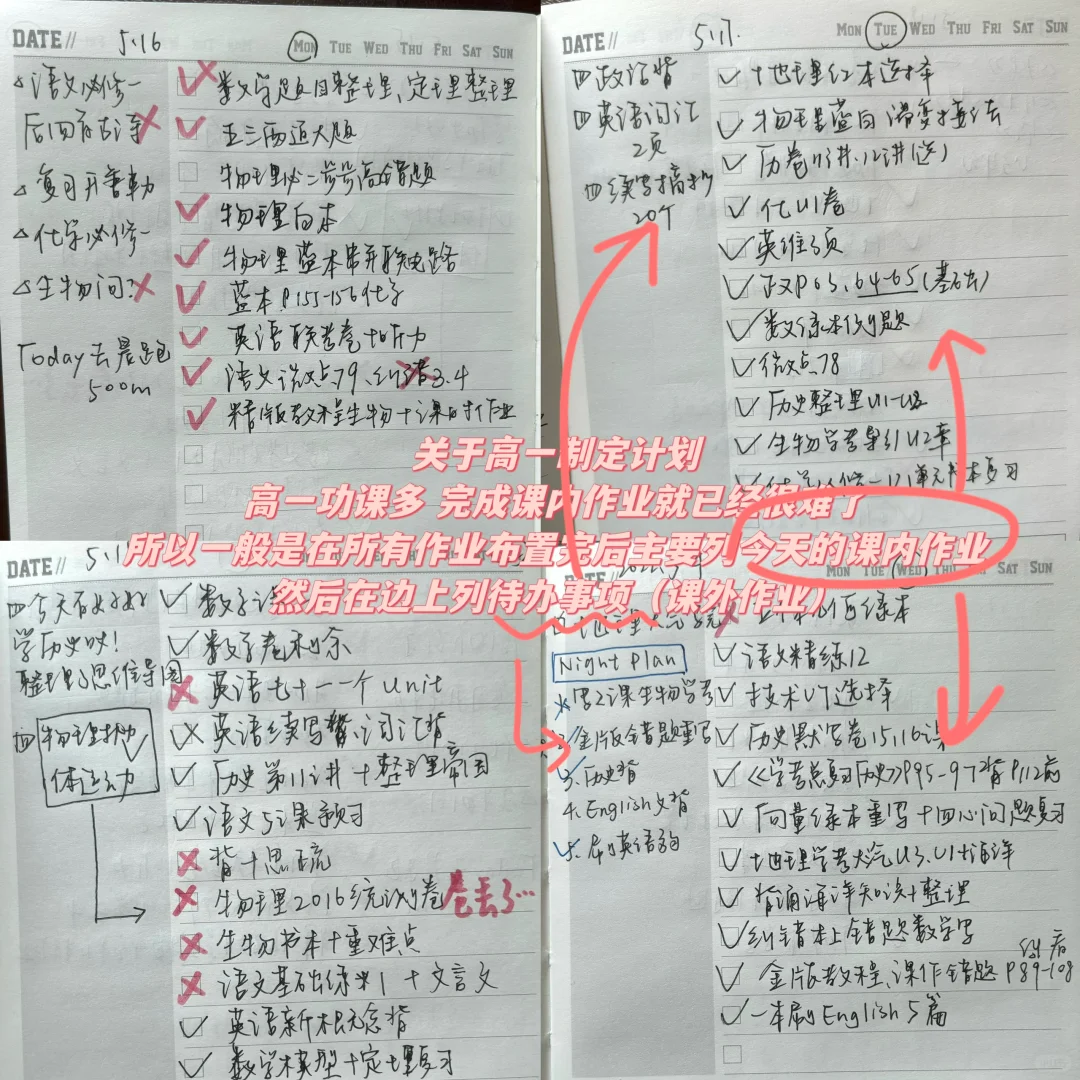 DATE// 5.16 MON TUE WED THU FRI SAT SUN
语文必修一
后四首古诗
复习开普勒
化学必修一
生物问?
Today去晨跑
500m
数学题目整理、定理整理
五三两道大题
物理必二步步高错题
物理白本
物理蓝本串并联电路
蓝本P155-156化学
英语联考卷+听力
语文微点79、纠错3.4
精版教程生物+课时作业
DATE// 5.17. MON TUE WED THU FRI SAT SUN
政治背
英语词汇
2页
续写摘抄
20个
地理红本选择
物理蓝白
历卷11讲.12讲(选)
化U1卷
英维3页
政P63.64-65(基础)
数绿本例题
微点78
历史整理U1-U8
生物学考导引U2章
关于高一制定计划
高一功课多 完成课内作业就已经很难了
所以一般是在所有作业布置完后主要列今天的课内作业
然后在边上列待办事项（课外作业）
DATE// 5.1
今天有好好
学历史哎!
整理思维导图
物理抛
体运动
数学
数学卷剩余
英语七十一个unit
英语续写背、词汇背
历史第11讲+整理帝国
语文5课预习
背+思疏
生物书本+重难点
物理2016统测卷 卷丢了...
语文基础练习1+文言文
英语新概念背
数学模型+定理复习
MON TUE THU FRI SAT SUN
Night Plan
写2课生物学考
金版错题重写
3.历史背
4.English文背
语文精练12
技术U7选择
历史默写卷15,16课
《学考总复习历史》P95-97背P112前
向量绿本重写+四心问题复习
地理学考大气U3.U4海洋
背诵海洋知识+整理
纠错本上错题数学写
金版教程、课作错题P89-108
一本刷English 5篇